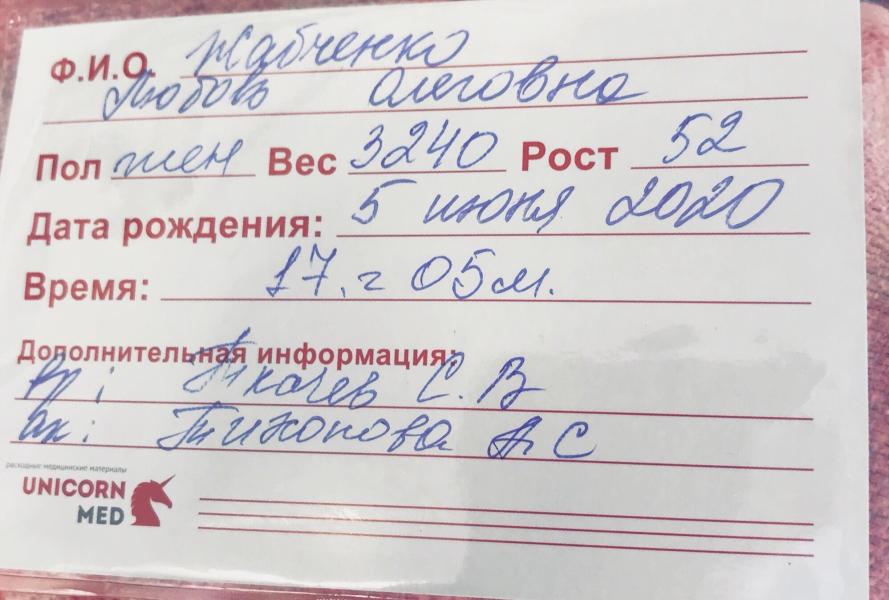 Ф.И.О. Жабченко
Любовь Олеговна
Пол жен Вес 3240 Рост 52
Дата рождения: 5 июня 2020
Время: 17.г 05м.
Дополнительная информация:
вр: Ткачев С.В
ак: Тихонова А С
расходные медицинские материалы
UNICORN
MED